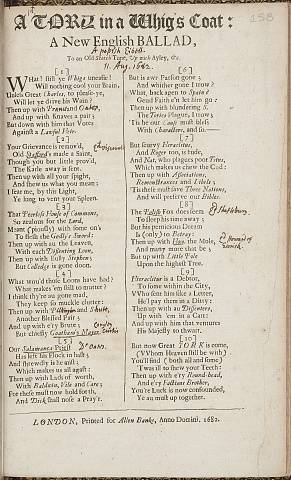 158
A TORY in a Whig's Coat:
A New English BALLAD,
a popish libell.
To an Old Shaven Tune, Up with Ayley, &c.
11. Aug. 1682.
[1]
WHat! still ye Whigs uneasie!
Will nothing cool your Brain,
Unless Great Charles, to please ye,
Will let ye drive his Wain?
Then up with
And up with Knaves a pair;
But down with him that Votes
Against a Lawful Heir.
[2]
Your Grievance is remov'd,
Old Stafford's made a Saint,
Though you but little prov'd,
The Earle away is sent.
Then up with all your spight,
And shew us what you mean;
I fear me, by this Light,
Ye long to vent your Spleen.
[3]
That Peerless House of Commons,
So zealous for the Lord,
Meant (piously) with some on's
To flesh the Godly's Sword:
Then up with au the Leaven,
With each Dissenting Loon,
Then up with Bully Stephen,
But Colledge is gone doun.
[4]
What wou'd those Loons have had?
What makes 'em still to mutter?
I think they're au gone mad,
They keep so muckle clutter:
Then up with
Another Blessed Pair;
And up with e'ry Brute;
But chiefly
[5]
Our Salamanca-Priest
Dr Oates.
Has left his Flock in hast;
And shrewdly is he mist;
Which makes us all agast:
Then up with Lads of worth,
With Baldwin, Vile and Care;
For these must now hold forth,
And Dick shall nose a Pray'r.
[6]
But is awr Parson gone;
And whither gone I trow?
What, back agen to Spain?
Gead Faith e'en let him go:
Then up with blundering S.
The Rebes Plague, I trow;
To be our Cause must bless
With Characters, and so.—
[7]
But scurvy Heraclitus,
And Roger too, is rude,
And Nat, who plagues poor Titus,
Which makes us chew the Cud:
Then up with Associations,
Remonstrances and Libels;
En these must save Three Nations,
And will preserve our Bibles.
[8]
The Polish Fox does seem
E. Shaftsbury.
To sleep his time away;
But his pernicious Dream
Is (only) to Betray:
Then up with Hon the Mole,
And many more that be;
But up with Little Pole
Upon the highest Tree.
[9]
Heraclitus is a Debtor,
To some within the City,
Who sent him sike a Letter,
He'l pay them in a Ditty:
Then up with au Dissenters,
Up with 'em in a Cart:
And up with him that ventures
His Majesty to thwart.
[10]
But now Great YORK is come,
(Whom Heaven still be with)
You'll find (both all and some)
'Twas ill to shew your Teeth:
Then up with e'ry Round-head,
And e'ry Factious Brother,
You're Luck is now confounded,
Ye au must up together.
LONDON, Printed for Allen Banks, Anno Domini. 1682.